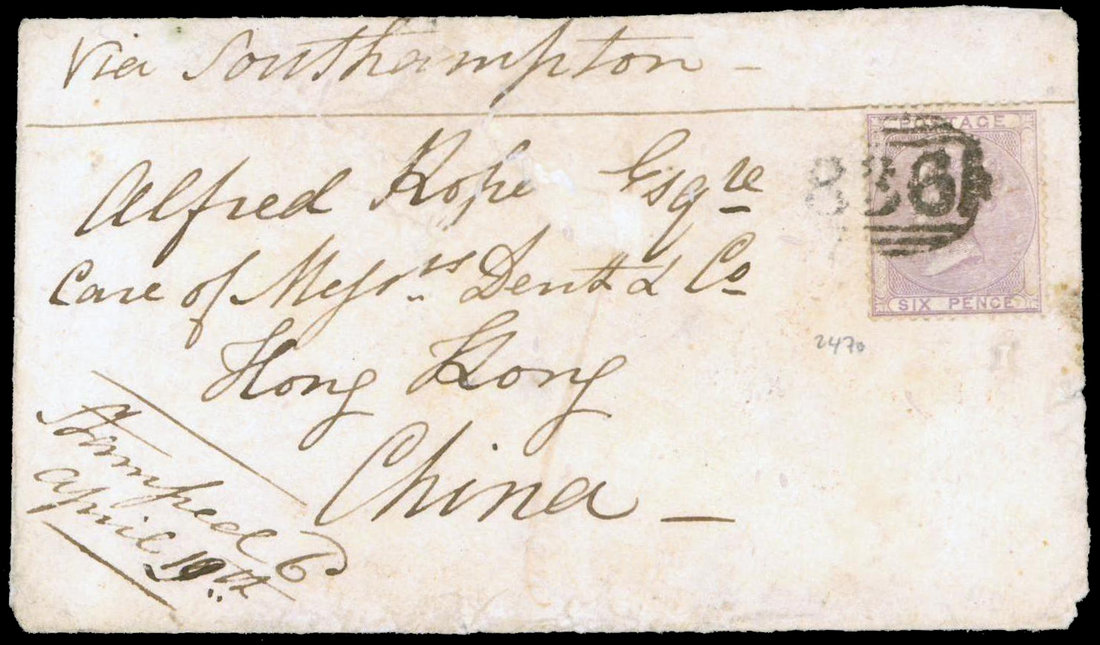 Via Southampton -
POSTAGE
Alfred Rope Esqre
836
Care of Messrs Dent & Co
SIX PENCE
2470
Hong Kong
China -
Stamped 6d
April 19th